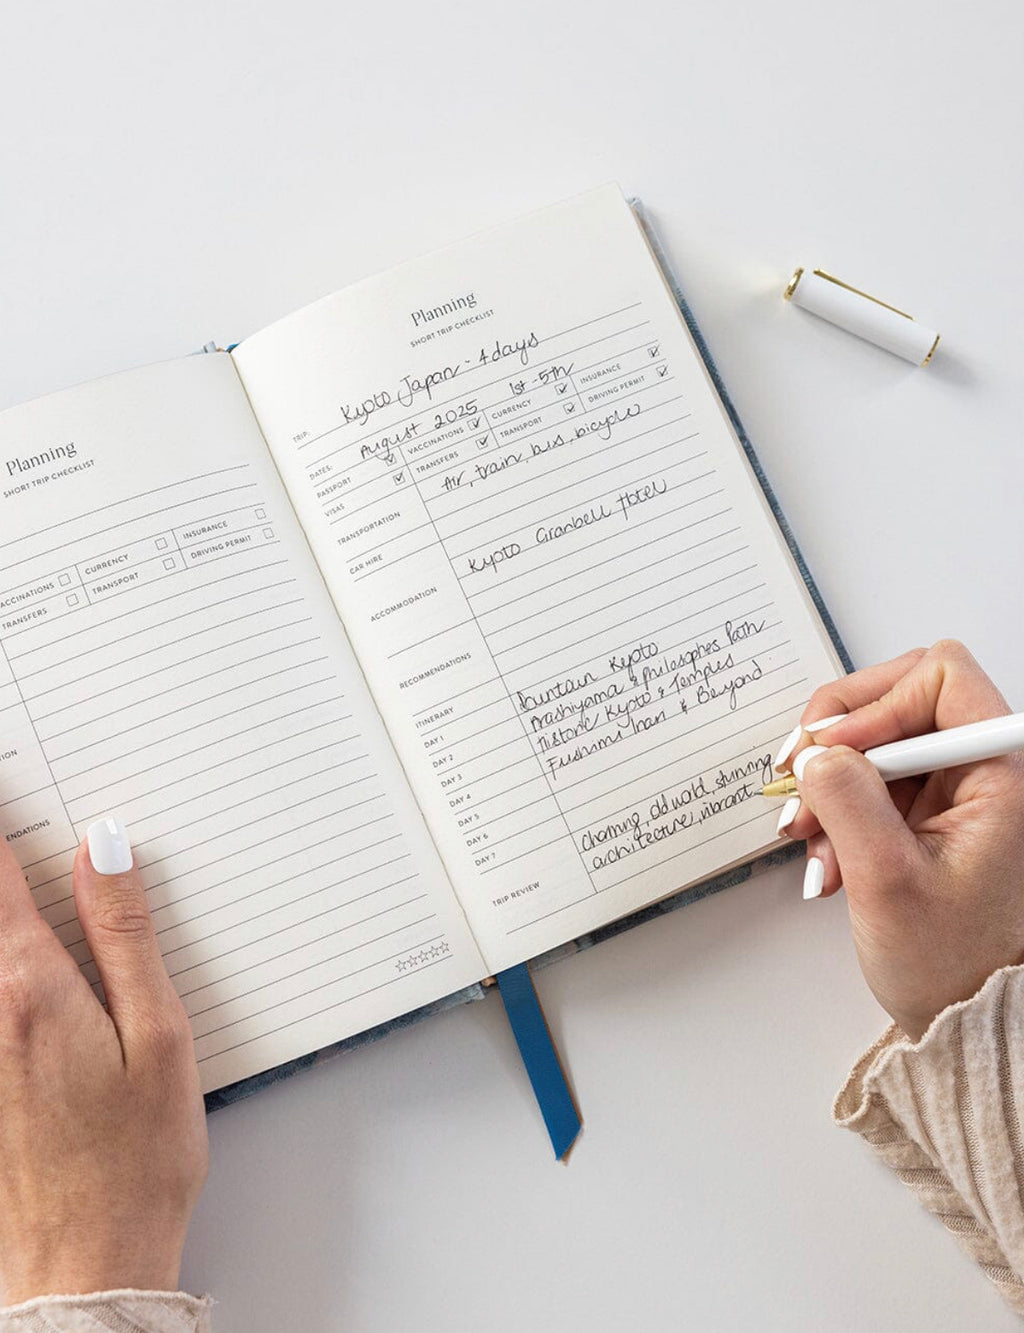 Planning
SHORT TRIP CHECKLIST
ACCINATIONS
CURRENCY
INSURANCE
TRANSFERS
TRANSPORT
DRIVING PERMIT
ION
ENDATIONS
Planning
SHORT TRIP CHECKLIST
TRIP: Kyoto Japan - 4 days
DATES: August 2025 1st - 5th
PASSPORT VACCINATIONS CURRENCY INSURANCE
VISAS TRANSFERS TRANSPORT DRIVING PERMIT
TRANSPORTATION Air, train, bus, bicycle
CAR HIRE
ACCOMMODATION Kyoto Granbell Hotel
RECOMMENDATIONS
ITINERARY
DAY 1 Kyoto
DAY 2 Arashiyama & Philosophes Path
DAY 3 Historic Kyoto & Temples
DAY 4 Fushimi Inari & Beyond.
DAY 5
DAY 6
DAY 7
TRIP REVIEW Charming, old world, stunning
architecture, vibrant